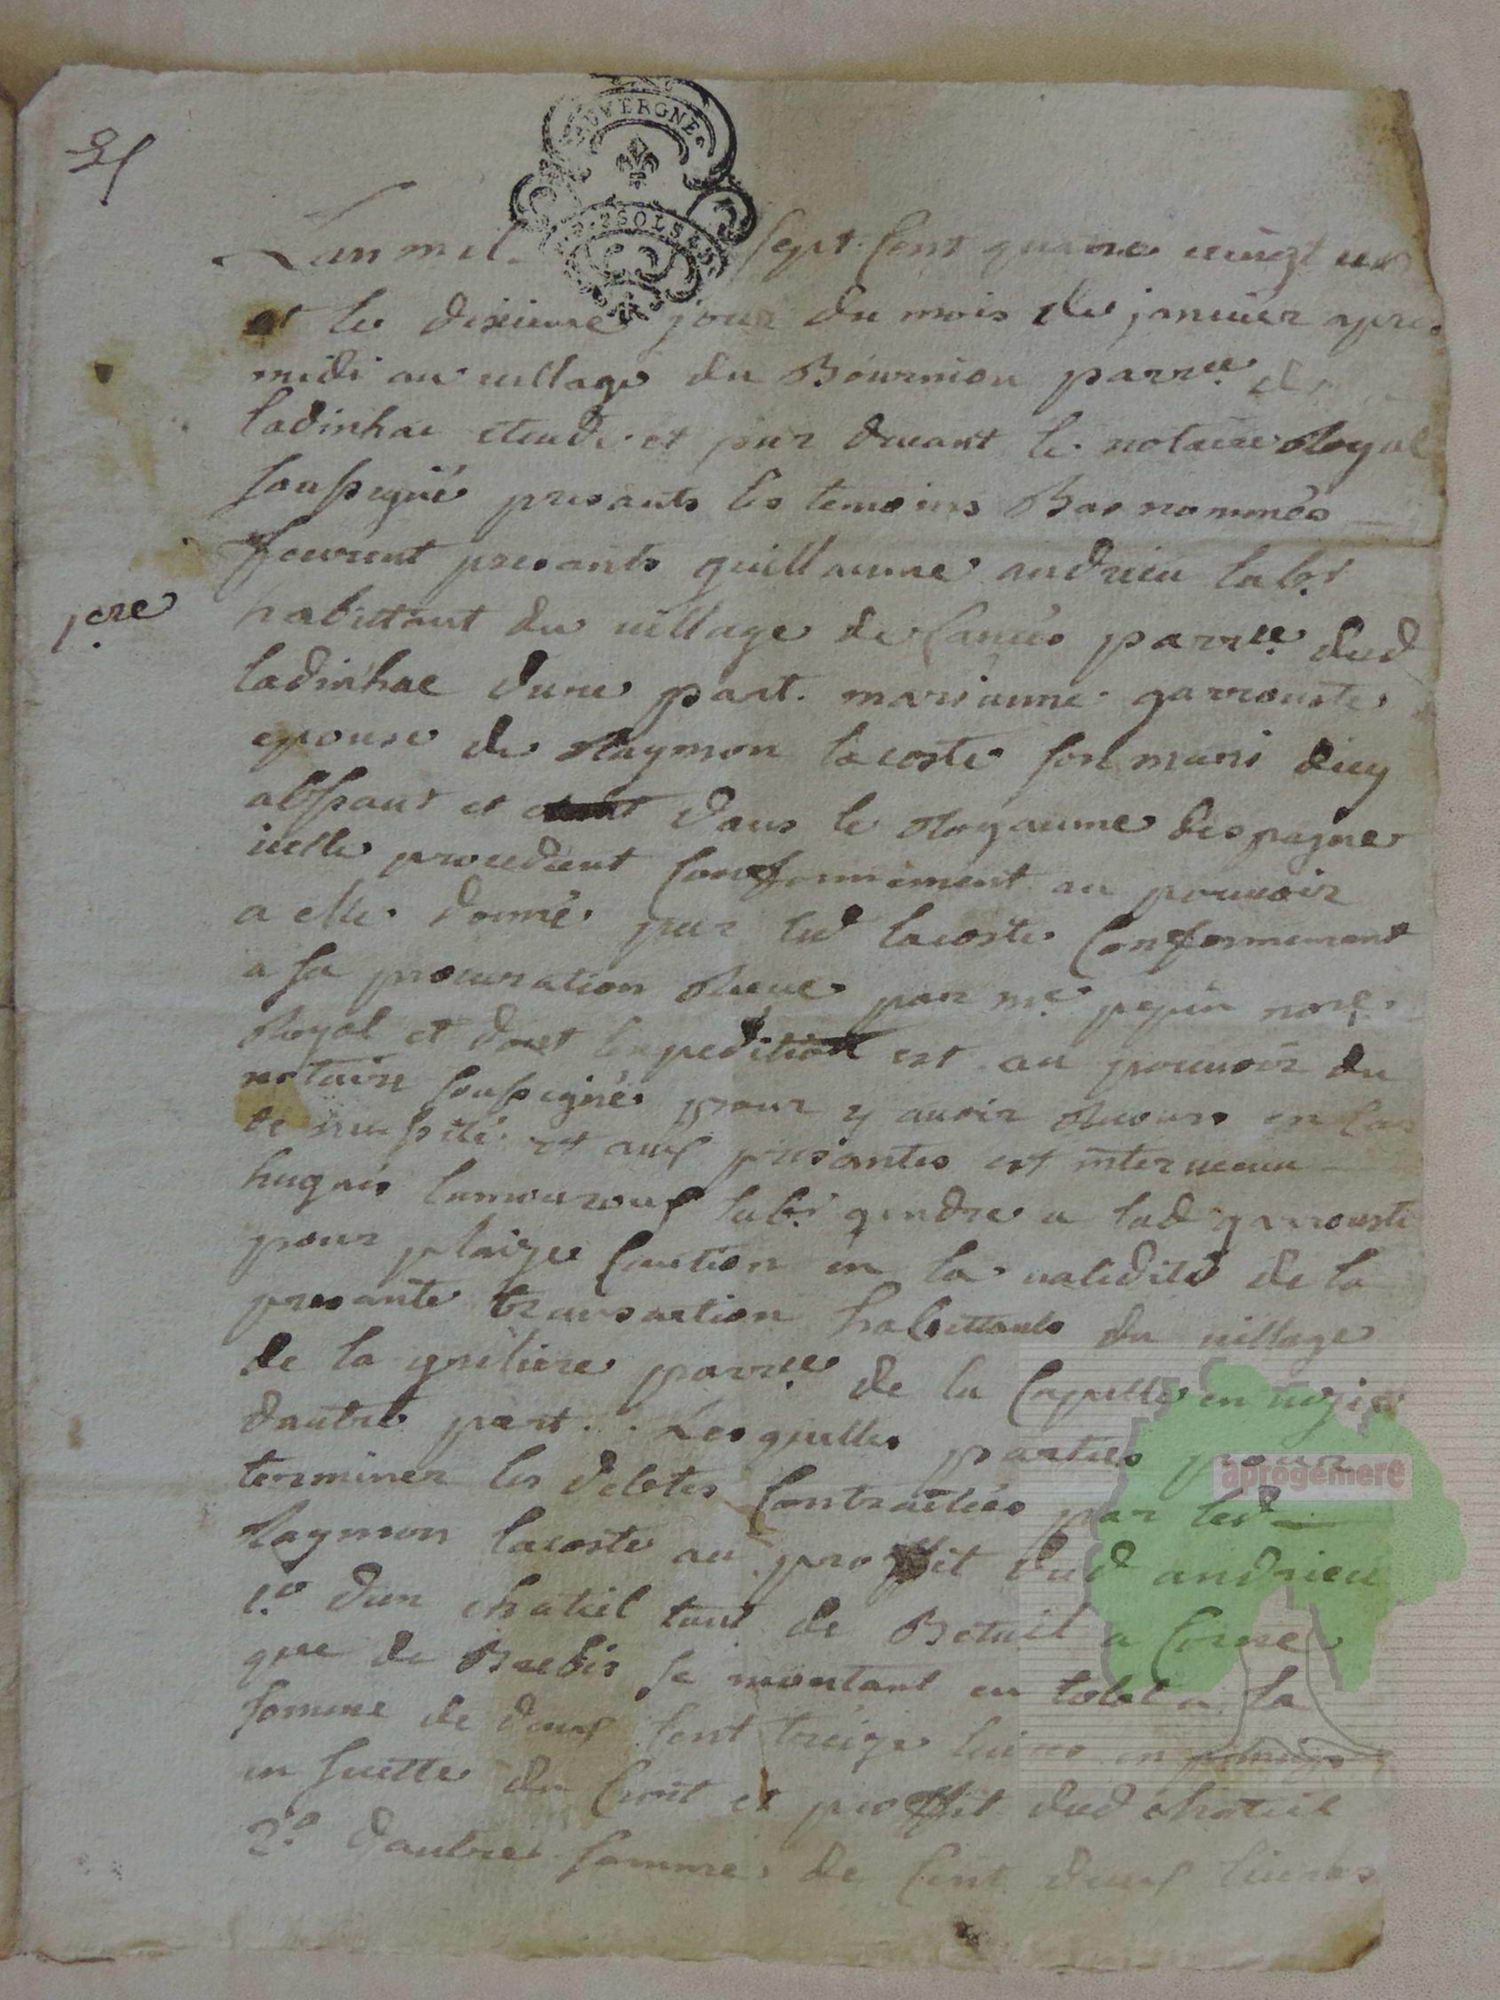 25
AUVERGNE
2 SOLS 8 D
Lan mil sept Cent quatre vingt un
et le dixieme jour du mois de janvier apres
midi au village du Bournion parr.lle de
ladinhac etude et par devant le notaire Royal
soussigné presants les temoins Bas nommés
feurent presants guillaume andrieu lab.r
1.ere
habittant du village de Cancés parr.lle dud
ladinhac dune part. marianne garrouste
epouse de Raymon lacoste son mari dicy
abssant et dans le Royaume despagne
icelle procedant Conformement au pouvoir
a elle donné par led lacoste Conformement
a sa procuration Reçue par m.e pepin no.re
Royal et dont lexpedition est au pouvoir du
notaire soussigné pour y avoir Recours en Cas
de necssité et aux presantes est intervenu
hugues lamouroux lab.r gendre a lad garrouste
pour plaige Caution en la validité de la
presante transaction habittants du village
de la parr.lle de la Capelle en vezie
dautre part. Lesquelles parties pour
terminer les debtes Contractées par led
Raymon lacoste au proffit dud andrieu
1.o dun chatiel tant de Betail a Corne
que de Brebis se montant en total a la
somme de deux Cent treize livres en
en suitte du Croit et proffit dud chatiel
2.o dautre somme de Cent deux livres
aprogemere